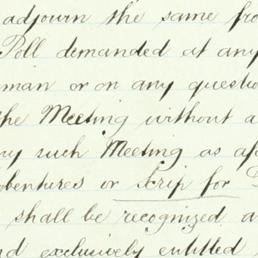 adjourn the same fro
Poll demanded at any
man or on any questio
the Meeting without a
ny such Meeting as af
ebentures or Scrip for D
shall be recognized a
nd exclusively entitled